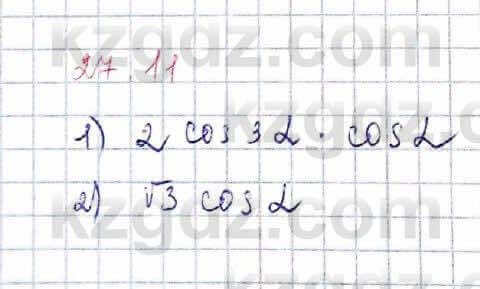 kzgdz.com
27.11
1) 2 cos 3α · cos α
kzgdz.com
2) √3 cos α
kzgdz.com